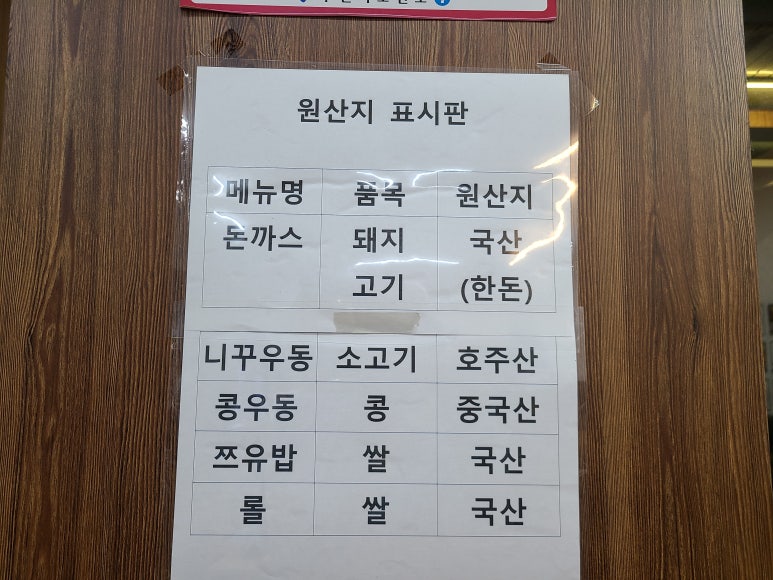 원산지 표시판
메뉴명 품목 원산지
돈까스 돼지 국산
고기 (한돈)
니꾸우동 소고기 호주산
콩우동 콩 중국산
쯔유밥 쌀 국산
롤 쌀 국산